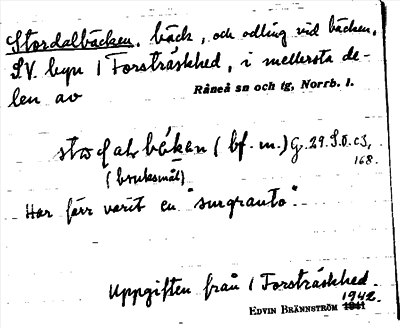 Stordalbäcken, bäck, och odling vid bäcken,
S.V. byn 1 Forsträskhed, i mellersta de-
len av
Råneå sn och tg, Norrb. l.
bäkan (bf. m.) G. 29. S.O. c3,
168.
(bruksmål)
Har förr varit en "surgrauto".
Uppgiften från 1 Forsträskhed.
1942.
EDVIN BRÄNNSTRÖM 1941